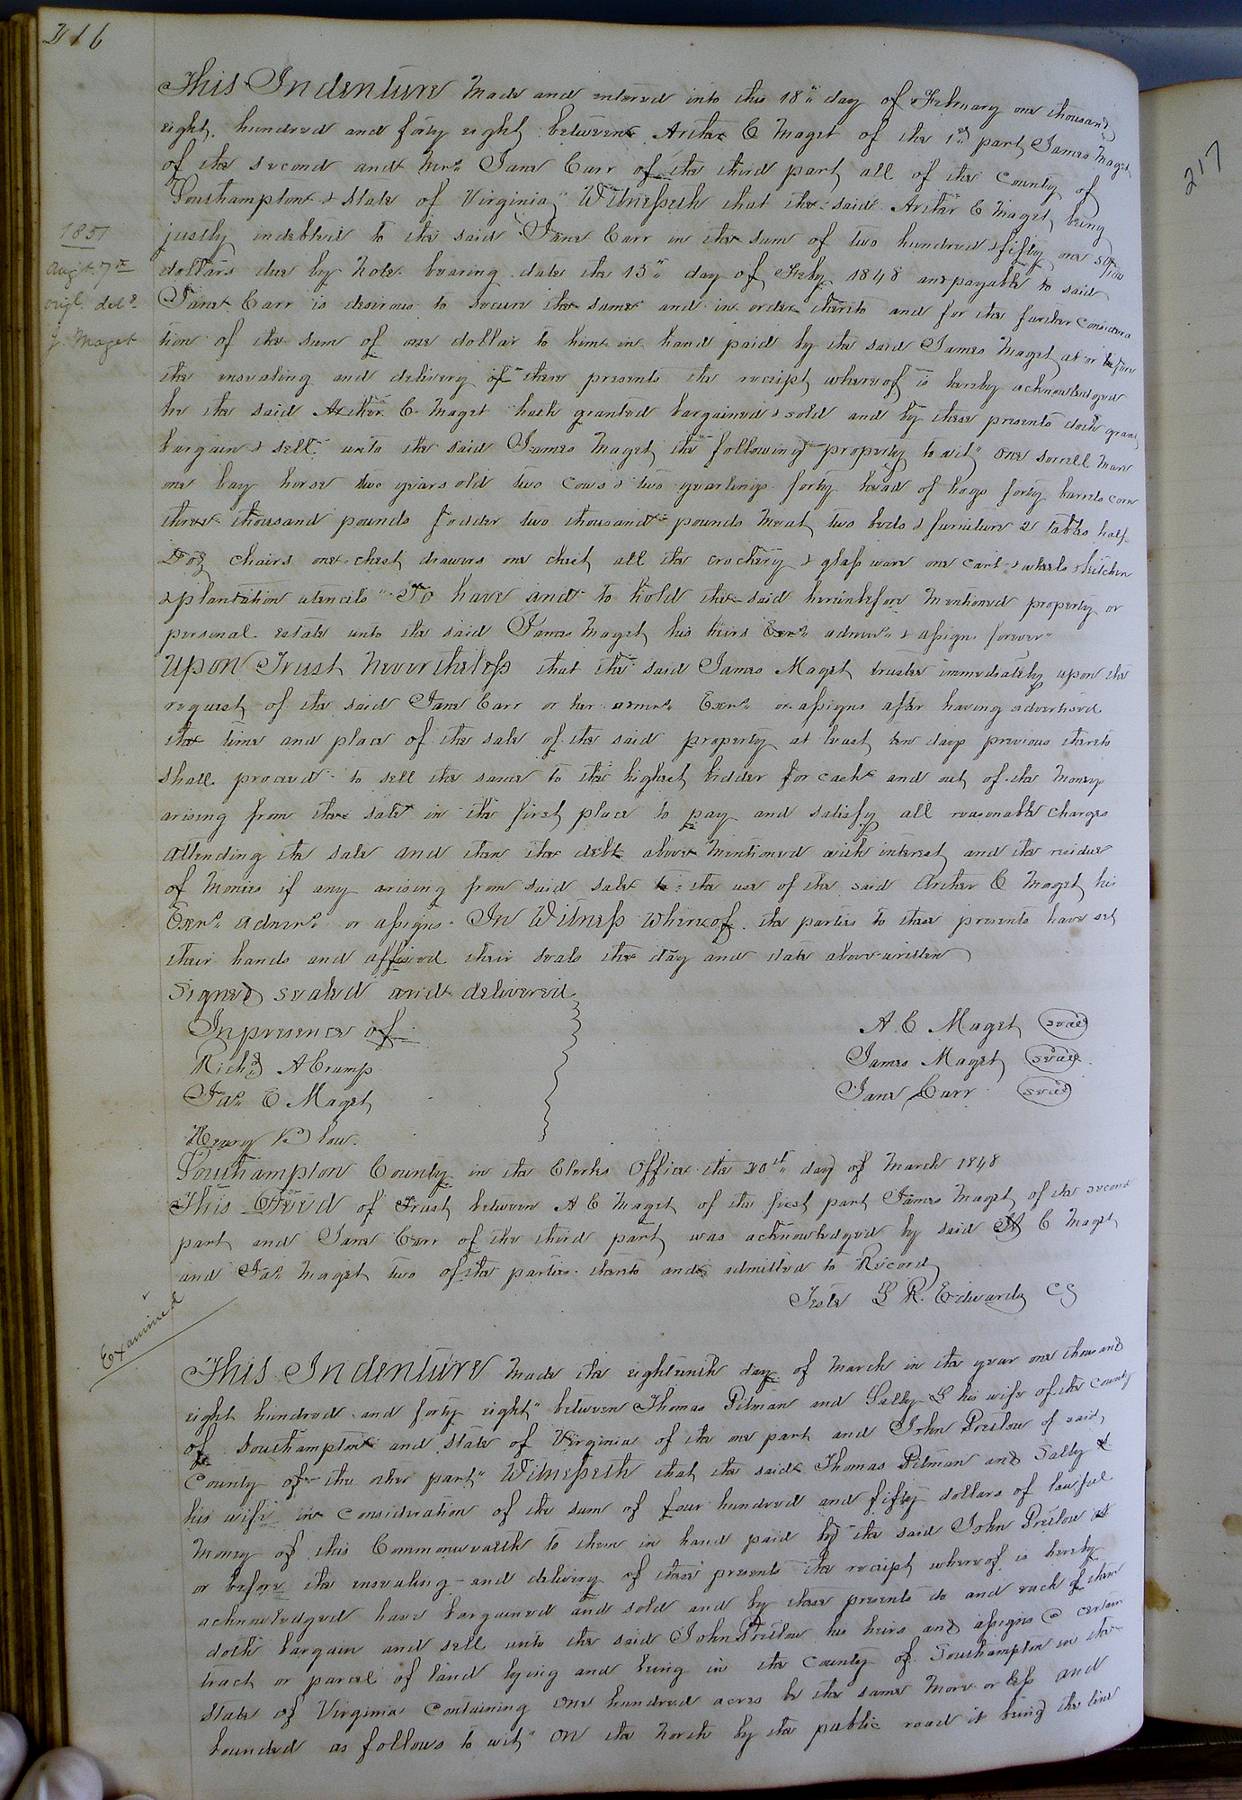 216
This Indenture Made and entered into this 18th day of February one thousand
eight hundred and forty eight between Archer C Maget of the 1st part James Maget
of the second and Mrs Jane Carr of the third part all of the County of
Southampton & State of Virginia" Witnesseth that the said Archer C Maget being
justly indebted to the said Jane Carr in the sum of two hundred & fifty one 50/100
dollars due by note bearing date the 15th day of Feby 1848 and payable to said
Jane Carr is desirous to secure the same and in order thereto and for the further considera
tion of the sum of one dollar to him in hand paid by the said James Maget at or before
the ensealing and delivery of these presents the receipt whereof is hereby acknowledged
he the said Archer C. Maget hath granted bargained & sold and by these presents doth grant
bargain & sell unto the said James Maget the following property to wit" one sorrell mare
one bay horse two years old two cows & two yearlings forty head of hogs forty barrels corn
three thousand pounds fodder two thousand pounds Meat two beds & furniture 2 tables half
Doz chairs one chest drawers one chest all the crockery & glass ware one cart & wheels & kitchen
& plantation utencils" To have and to hold the said hereinbefore mentioned property or
personal estate unto the said James Maget his heirs Exors admors & assigns forever"
Upon Trust Nevertheless that the said James Maget trustee immediately upon the
request of the said Jane Carr or her admrs Exors or assigns after having advertised
the time and place of the sale of the said property at least ten days previous thereto
shall proceed to sell the same to the highest bidder for cash and out of the money
arising from the sale in the first place to pay and satisfy all reasonable charges
attending the sale and then the debt above mentioned with interest and the residue
of monies if any arising from said sale to the use of the said Archer C Maget his
Exors admors or assigns. In Witness Whereof the parties to these presents have set
their hands and affixed their seals the day and date above written
Signed sealed and delivered
In presence of
Richd A Crump
Jas C Maget
Henry B law.
A C Maget seal
James Maget seal
Jane Carr seal
Southampton County in the Clerks Office the 20th day of March 1848
This Deed of Trust between A C Maget of the first part James Maget of the second
part and Jane Carr of the third part was acknowledged by said A C Maget
and Jas Maget two of the parties thereto and admitted to Record
Teste L R. Edwards CS
1851
Augt. 7th
origl. deld.
J. Maget
Examined
This Indenture Made the eighteenth day of March in the year one thousand
eight hundred and forty eight" between Thomas Pitman and Sally L his wife of the County
of Southampton and State of Virginia of the one part and John Preslow of said
County of the other part" Witnesseth that the said Thomas Pitman and Sally L
his wife in consideration of the sum of four hundred and fifty dollars of lawful
money of this Commonwealth to them in hand paid by the said John Preslow at
or before the ensealing and delivery of these presents the receipt whereof is hereby
acknowledged have bargained and sold and by these presents do and each of them
doth bargain and sell unto the said John Preslow his heirs and assigns a certain
tract or parcel of land lying and being in the County of Southampton in the
State of Virginia containing one hundred acres be the same more or less and
bounded as follows to wit" On the North by the public road it being the line
217